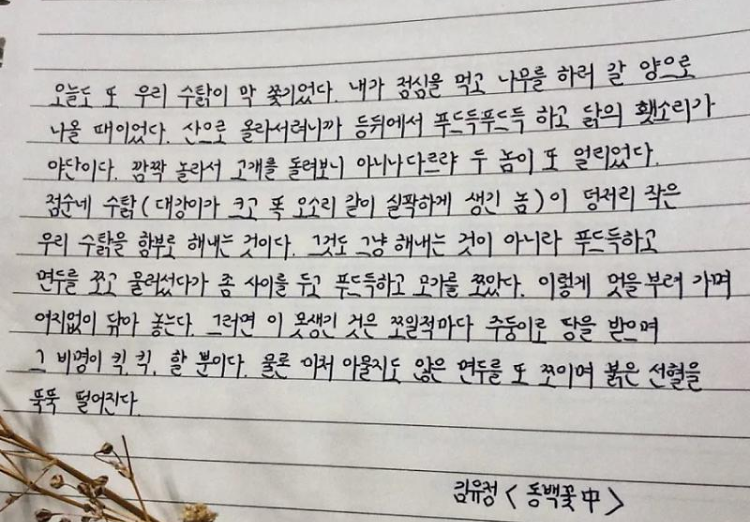 오늘도 또 우리 수탉이 막 쫓기었다. 내가 점심을 먹고 나무를 하러 갈 양으로
나올 때이었다. 산으로 올라서려니까 등뒤에서 푸드득푸드득 하고 닭의 횃소리가
야단이다. 깜짝 놀라서 고개를 돌려보니 아니나다르랴 두 놈이 또 얼리었다.
점순네 수탉(대강이가 크고 똑 오소리 같이 실팍하게 생긴 놈)이 덩저리 작은
우리 수탉을 함부로 해내는 것이다. 그것도 그냥 해내는 것이 아니라 푸드득하고
면두를 쪼고 물러섰다가 좀 사이를 두고 푸드득하고 모가를 쪼았다. 이렇게 멋을 부려 가며
여지없이 닦아 놓는다. 그러면 이 못생긴 것은 쪼일적마다 주둥이로 땅을 받으며
그 비명이 킥, 킥, 할 뿐이다. 물론 미처 아물지도 않은 면두를 또 쪼이며 붉은 선혈을
뚝뚝 떨어진다.
김유정 < 동백꽃 中 >